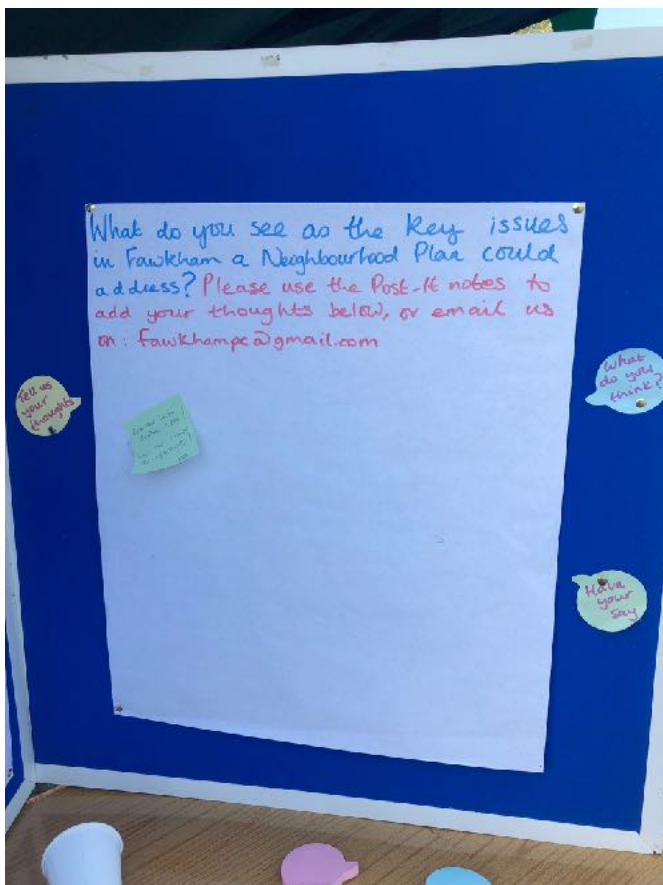 What do you see as the key issues
in Fawkham a Neighbourhood Plan could
address? Please use the Post-It notes to
add your thoughts below, or email us
on: fawkhampc@gmail.com
Tell us
your
thoughts
What
do you
think?
Have
your
say